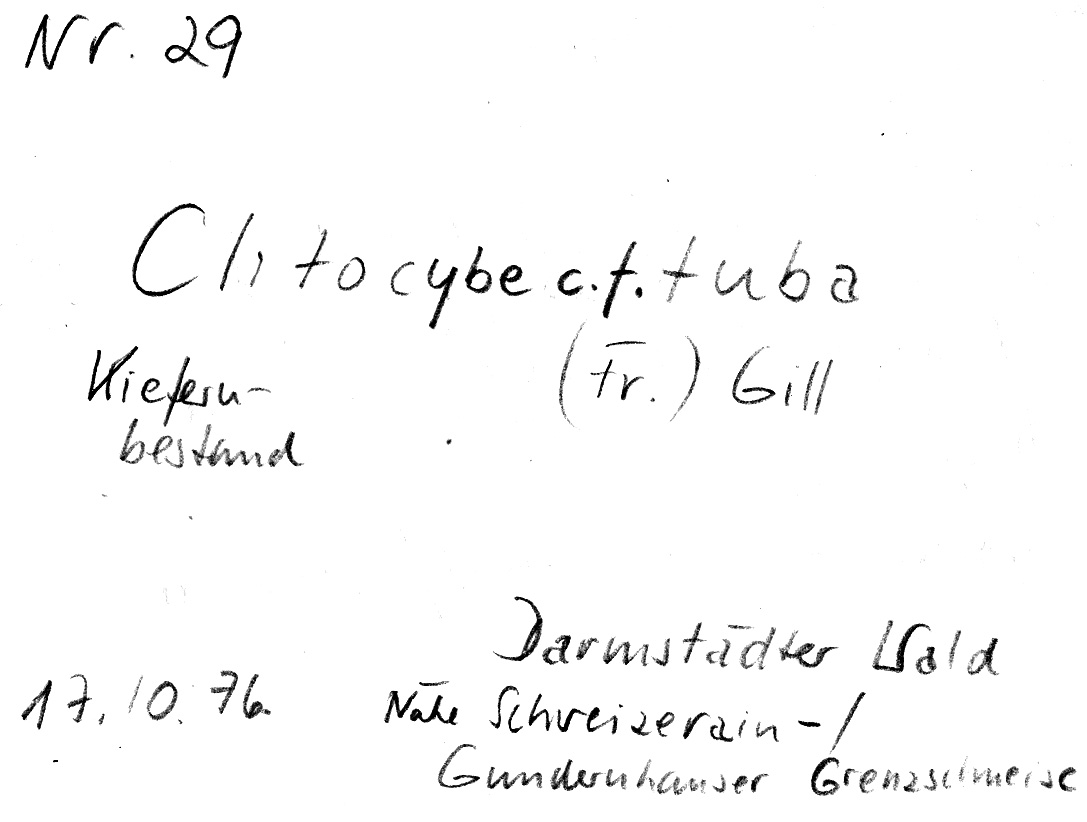 Nr. 29
Clitocybe c.f. tuba
(Fr.) Gill
Kiefern-
bestand
Darmstädter Wald
17.10.76.
Nähe Schweizerain-/
Gundernhauser Grenzschneise